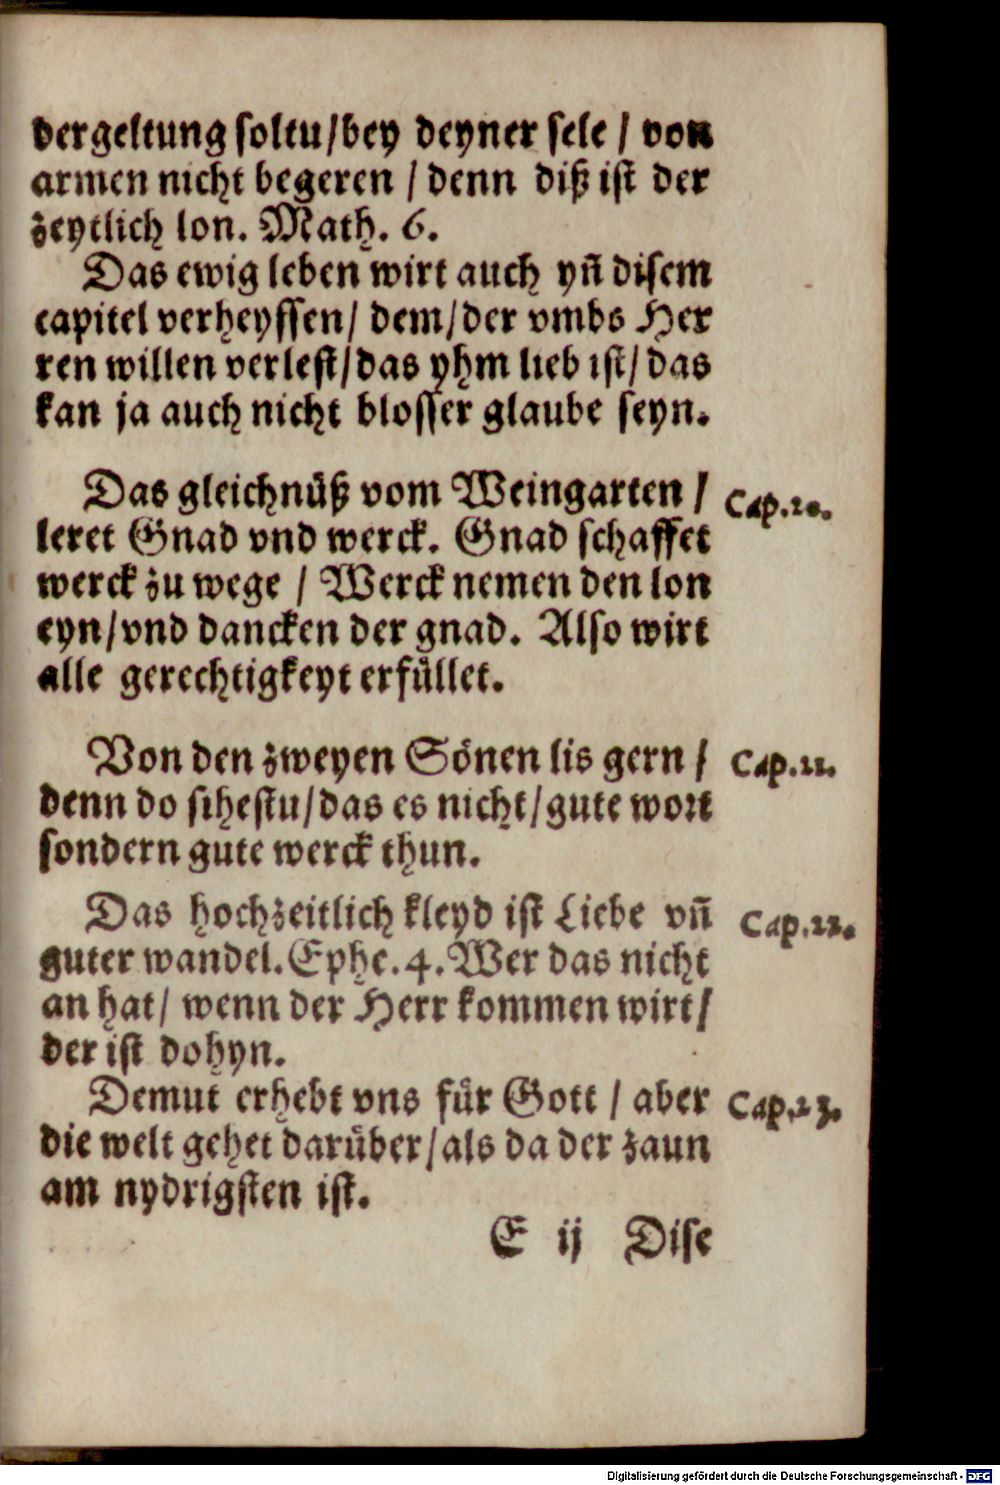 dergeltung soltu/bey deyner sele / von
armen nicht begeren / denn diß ist der
zeytlich lon. Math. 6.
Das ewig leben wirt auch yn̄ disem
capitel verheyssen/ dem/der vmbs Her
ren willen verlest/das yhm lieb ist/das
kan ja auch nicht blosser glaube seyn.
Das gleichnüß vom Weingarten / Cap.20.
leret Gnad vnd werck. Gnad schaffet
werck zu wege / Werck nemen den lon
eyn/vnd dancken der gnad. Also wirt
alle gerechtigkeyt erfüllet.
Von den zweyen Sönen lis gern / Cap.21.
denn do sihestu/das es nicht/gute wort
sondern gute werck thun.
Das hochzeitlich kleyd ist Liebe vn̄ Cap.22.
guter wandel. Ephe.4. Wer das nicht
an hat/ wenn der Herr kommen wirt/
der ist dohyn.
Demut erhebt vns für Gott / aber Cap.23.
die welt gehet darüber/als da der zaun
am nydrigsten ist.
E ij Dise
Digitalisierung gefördert durch die Deutsche Forschungsgemeinschaft - DFG